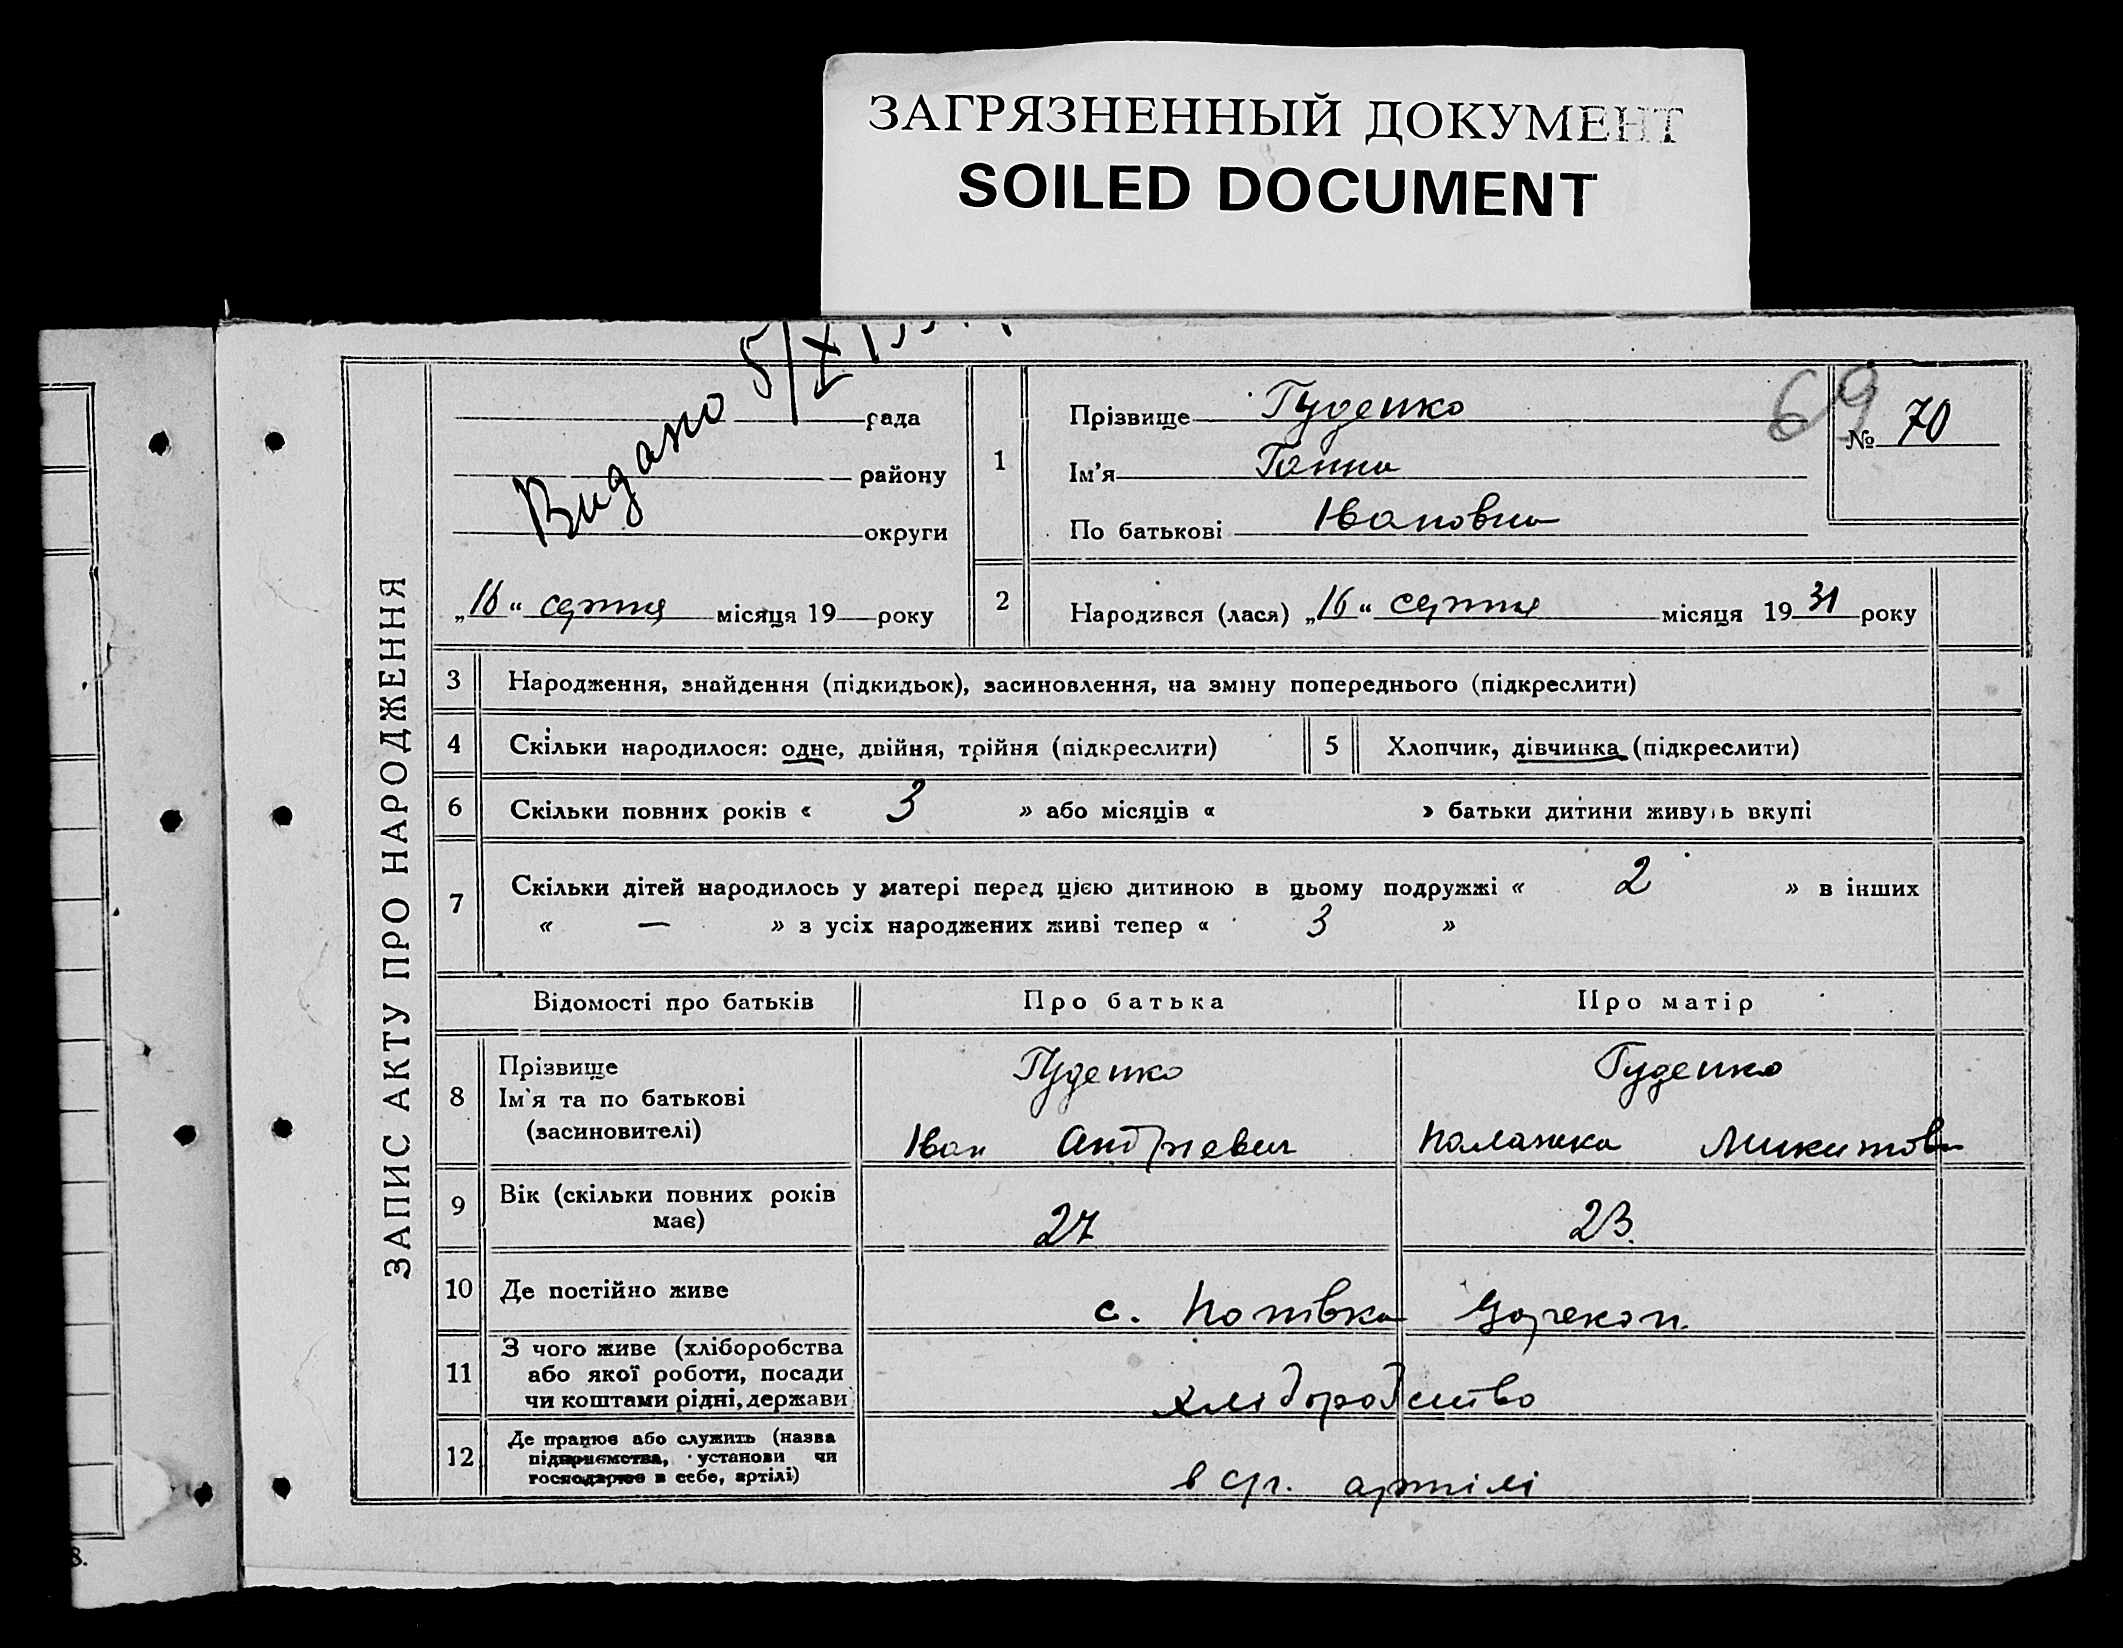 ЗАГРЯЗНЕННЫЙ ДОКУМЕНТ
SOILED DOCUMENT
Видано 5/X
ЗАПИС АКТУ ПРО НАРОДЖЕННЯ
рада
району
округи
„16“ серпня місяця 19 року
1
Прізвище Гуденко
Ім'я Ганна
По батькові Івановна
69
№ 70
2 Народився (лася) „16“ серпня місяця 1931 року
3 Народження, знайдення (підкидьок), засиновлення, на зміну попереднього (підкреслити)
4 Скільки народилося: одне, двійня, трійня (підкреслити)
5 Хлопчик, дівчинка (підкреслити)
6 Скільки повних років « 3 » або місяців « » батьки дитини живуть вкупі
7 Скільки дітей народилось у матері перед цією дитиною в цьому подружжі « 2 » в інших
« — » з усіх народжених живі тепер « 3 »
Відомості про батьків Про батька Про матір
8 Прізвище
Ім'я та по батькові
(засиновителі)
Гуденко
Іван Андріевич
Гуденко
Палажка Микитовн
9 Вік (скільки повних років
має)
27 23.
10 Де постійно живе
с. Попівка
11 З чого живе (хліборобства
або якої роботи, посади
чи коштами рідні, держави
хліборобство
12 Де працює або служить (назва
підприємства, установи чи
господарює в себе, артілі)
в с/г. артілі
8.